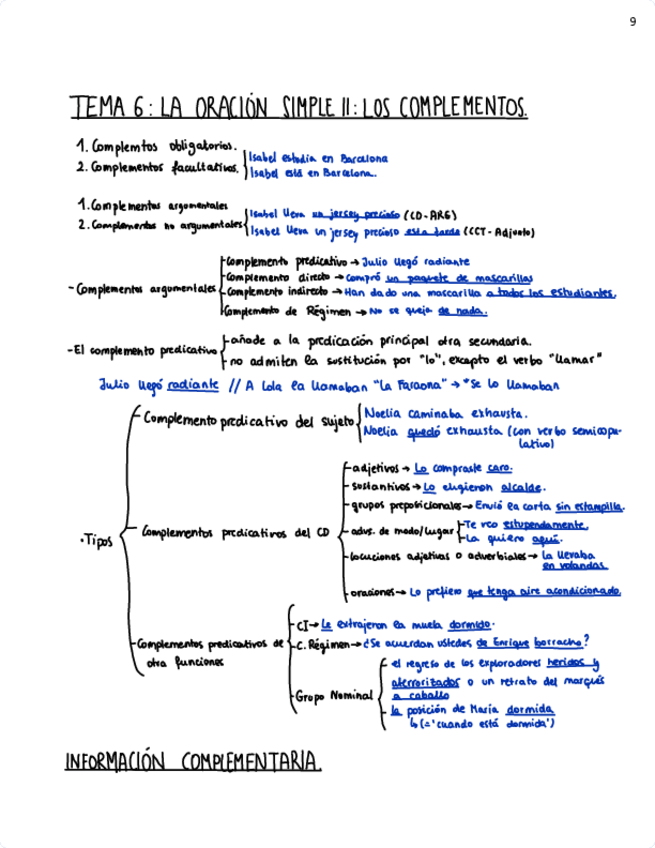 9
TEMA 6: LA ORACIÓN SIMPLE II: LOS COMPLEMENTOS.
1. Complemtos obligatorios.
2. Complementos facultativos.
Isabel estudia en Barcelona
Isabel está en Barcelona.
1. Complementos argumentales
2. Complementos no argumentales
Isabel lleva un jersey precioso (CD-ARG)
Isabel lleva un jersey precioso esta tarde (CCT-Adjunto)
- Complementos argumentales
- Complemento predicativo → Julio llegó radiante
- Complemento directo → Compró un paquete de mascarillas
- Complemento indirecto → Han dado una mascarilla a todos los estudiantes.
- Complemento de Régimen → No se queja de nada.
- El complemento predicativo
- añade a la predicación principal otra secundaria.
- no admiten la sustitución por "lo", excepto el verbo "llamar"
Julio llegó radiante // A Lola la llamaban "La Faraona" → *Se lo llamaban
• Tipos
Complemento predicativo del sujeto
Noelia caminaba exhausta.
Noelia quedó exhausta (con verbo semicopu-
lativo)
Complementos predicativos del CD
- adjetivos → Lo compraste caro.
- sustantivos → Lo eligieron alcalde.
- grupos preposicionales → Envió la carta sin estampilla.
- advs. de modo/lugar
- Te veo estupendamente.
- La quiero aquí.
- locuciones adjetivas o adverbiales → la llevaba
en volandas
- oraciones → Lo prefiero que tenga aire acondicionado.
- Complementos predicativos de
otra funciones
- CI → Le extrajeron la muela dormido.
- C. Régimen → ¿Se acuerdan ustedes de Enrique borracho?
- Grupo Nominal
- el regreso de los exploradores heridos y
aterrorizados o un retrato del marqués
a caballo
- la posición de María dormida
↳ (= 'cuando está dormida')
INFORMACIÓN COMPLEMENTARIA.